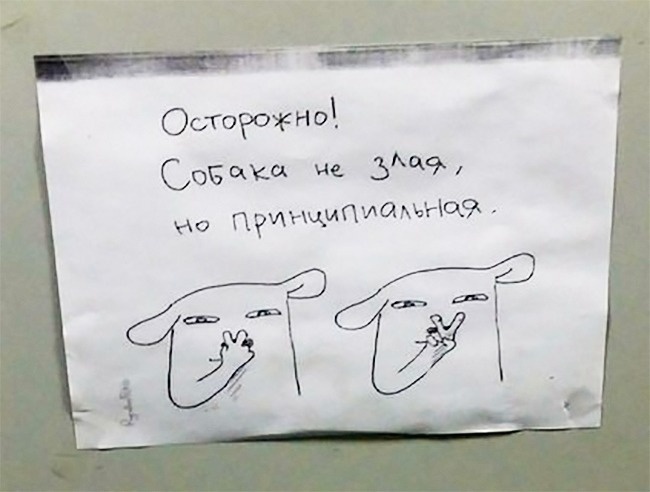 Осторожно!
Собака не злая,
но принципиальная.